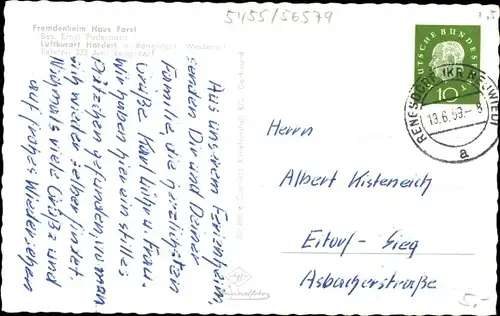 5455/56579
Fremdenheim Haus Forst
Bes. Ernst
Luftkurort Hardert b. Rengsdorf Westerwald
Telefon 375 Amt Rengsdorf
Aus unserem Ferienheim,
senden Dir und Deiner
Familie, die herzlichsten
Grüße Karl Luign u. Frau.
Wir haben hier ein stilles
Plätzchen gefunden, wo man
sich wieder selber findet.
Nochmals viele Grüße und
auf frohes Wiedersehen
DEUTSCHE BUNDESPOST
10
RENGSDORF (KR NEUWIED)
19.6.59.-8
a
Herrn
Albert Kisteneich
Eitorf-Sieg
Asbacherstraße
5,-